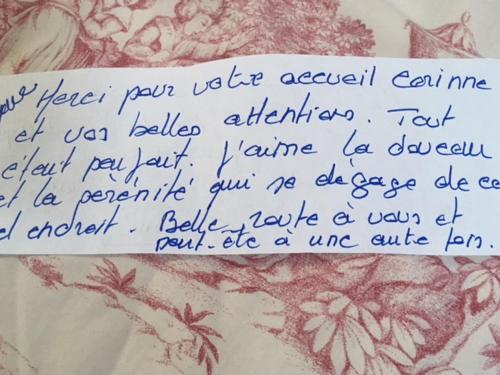 Merci pour votre accueil Corinne
et vos belles attentions. Tout
était parfait, j'aime la douceur
et la pérénité qui se dégage de ce
endroit. Belle route à vous et
peut-être à une autre fois.